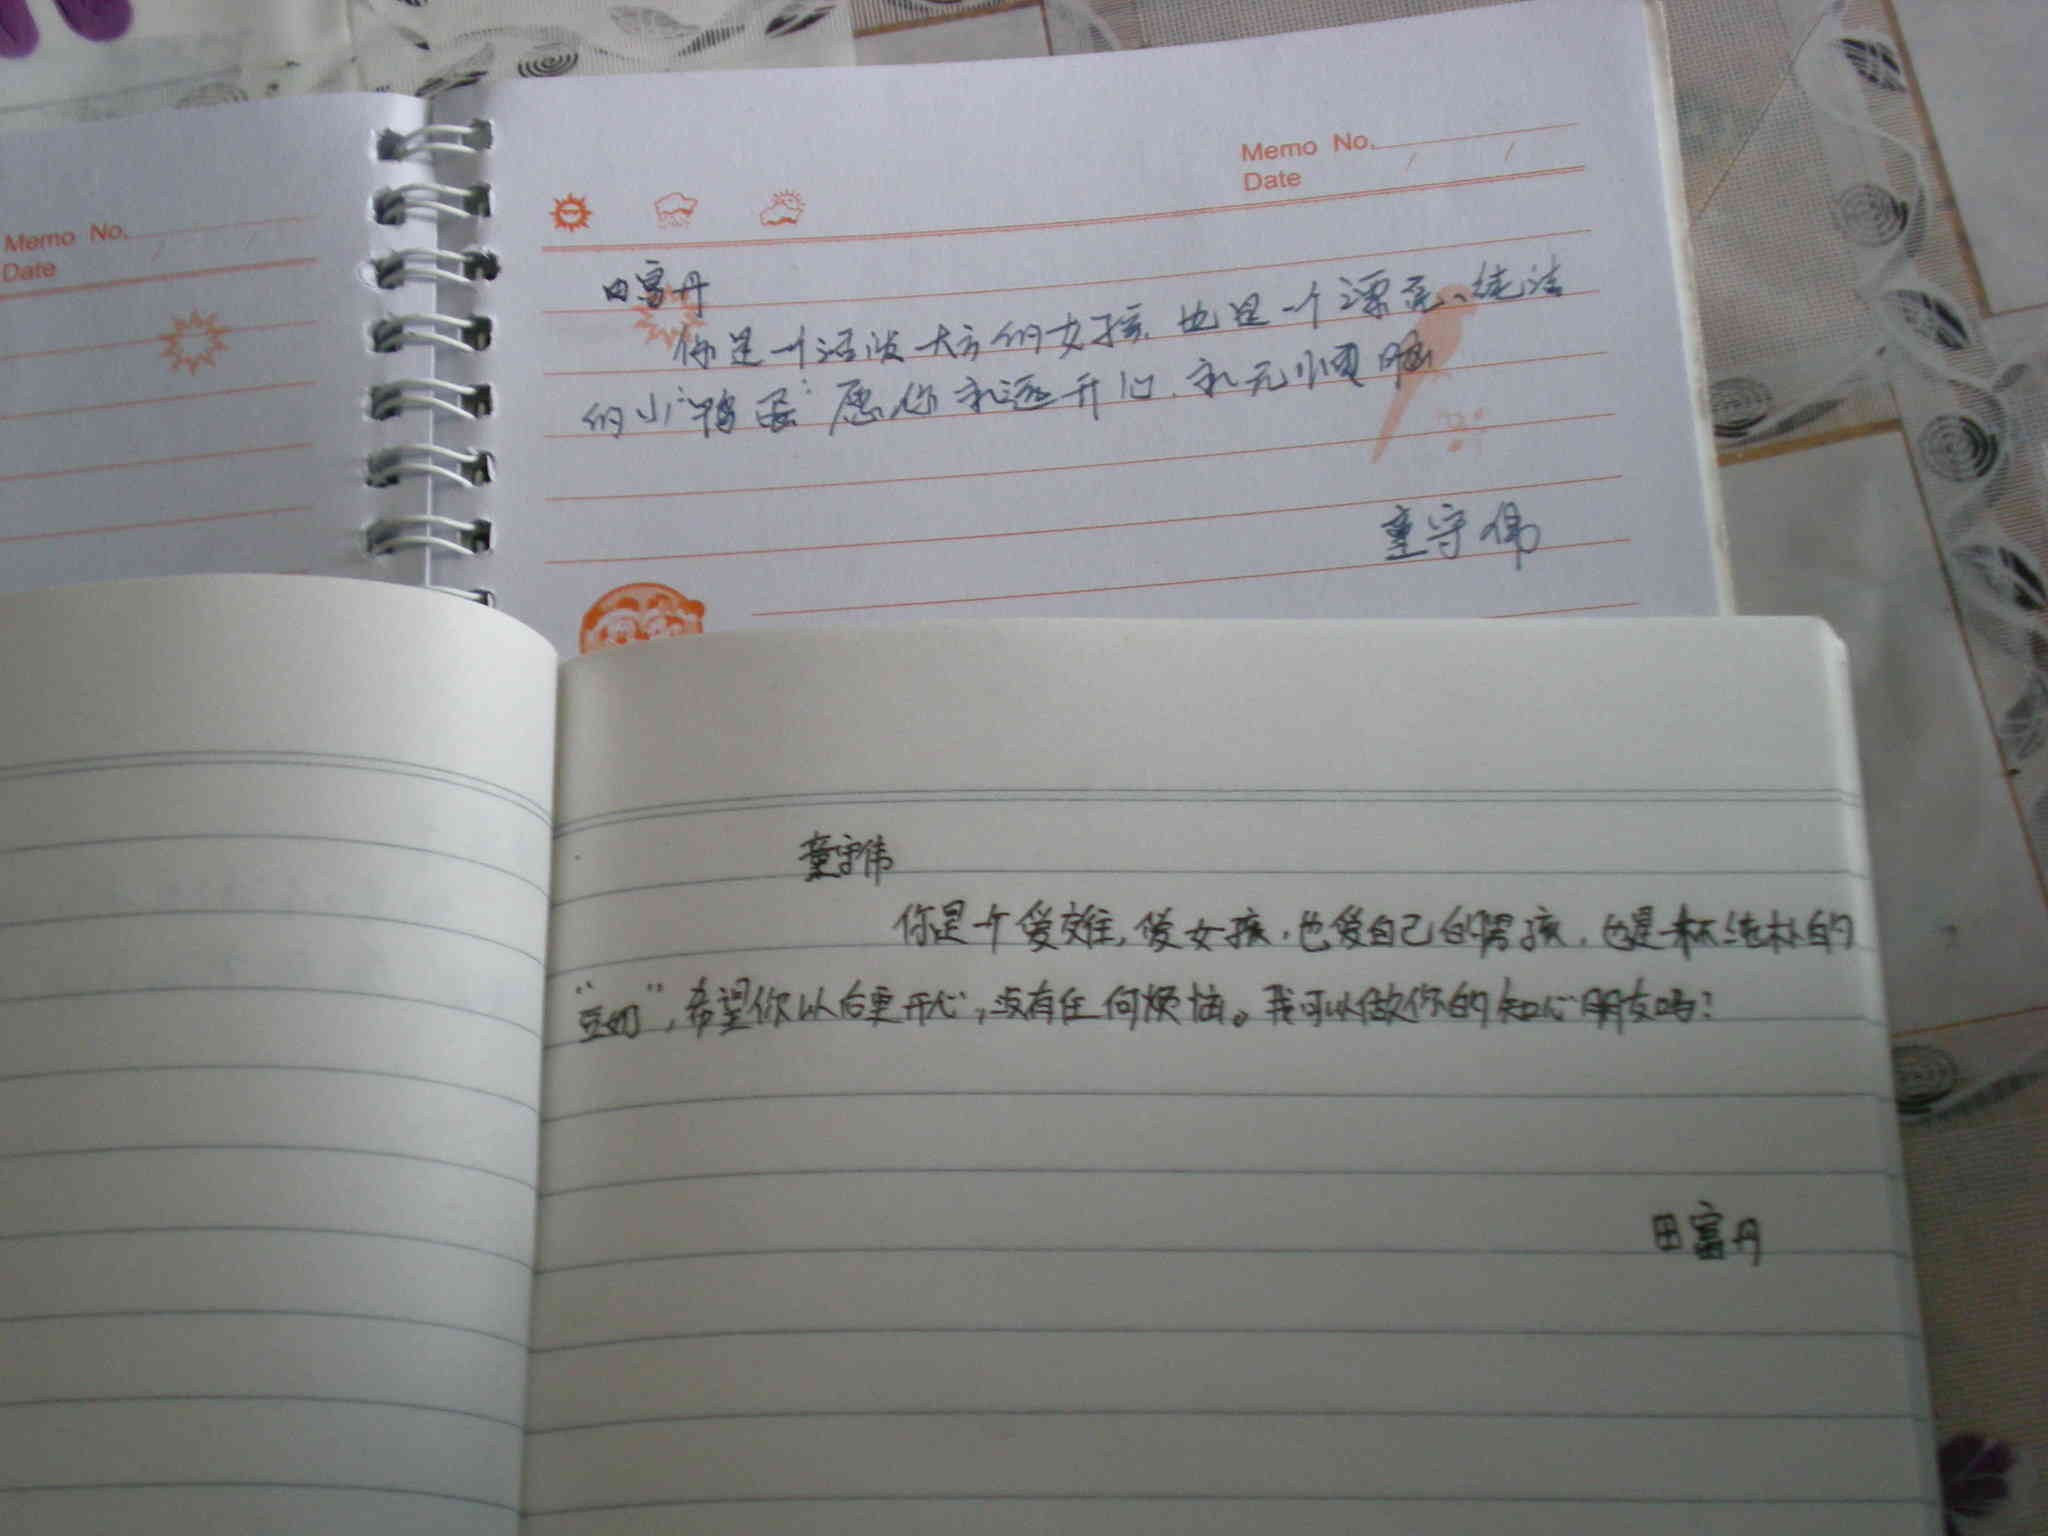 Memo No.
Date
Memo No.
Date
田富丹
你是一个活泼大方的女孩.也是一个漂亮、纯洁
的小"鸭蛋"愿你永远开心.永无烦脑
童守伟
童守伟
你是个爱难,爱女孩,也爱自己的男孩.也是一杯纯朴的
"豆奶",希望你以后更开心,没有任何烦恼。我可以做你的知心朋友吗?
田富丹